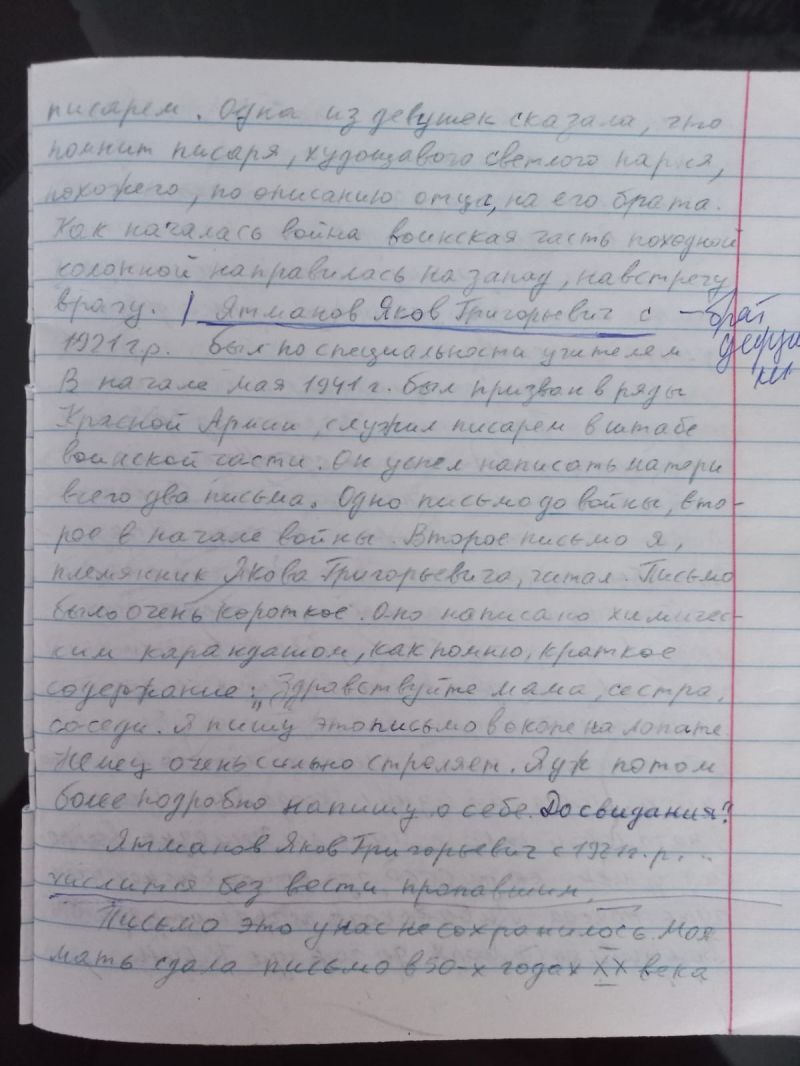 писарем. Одна из девушек сказала, что
помнит писаря, худощавого светлого парня,
похожего, по описанию отца, на его брата.
Как началась война воинская часть походной
колонной направилась на запад, навстречу
врагу. | Ятманов Яков Григорьевич с — брат
1921 г.р. был по специальности учителем.
В начале мая 1941 г. был призван в ряды
Красной Армии, служил писарем в штабе
воинской части. Он успел написать матери
всего два письма. Одно письмо до войны, вто-
рое в начале войны. Второе письмо я,
племянник Якова Григорьевича, читал. Письмо
было очень короткое. Оно написано химичес-
ким карандашом, как помню, краткое
содержание: „Здравствуйте мама, сестра,
соседи. Я пишу это письмо в окопе на лопате.
Немец очень сильно стреляет. Я уж потом
более подробно напишу о себе. Досвидания"
Ятманов Яков Григорьевич с 1921 г.р...
числится без вести пропавшим.
Письмо это у нас не сохранилось. Моя
мать сдала письмо в 50-х годах XX века